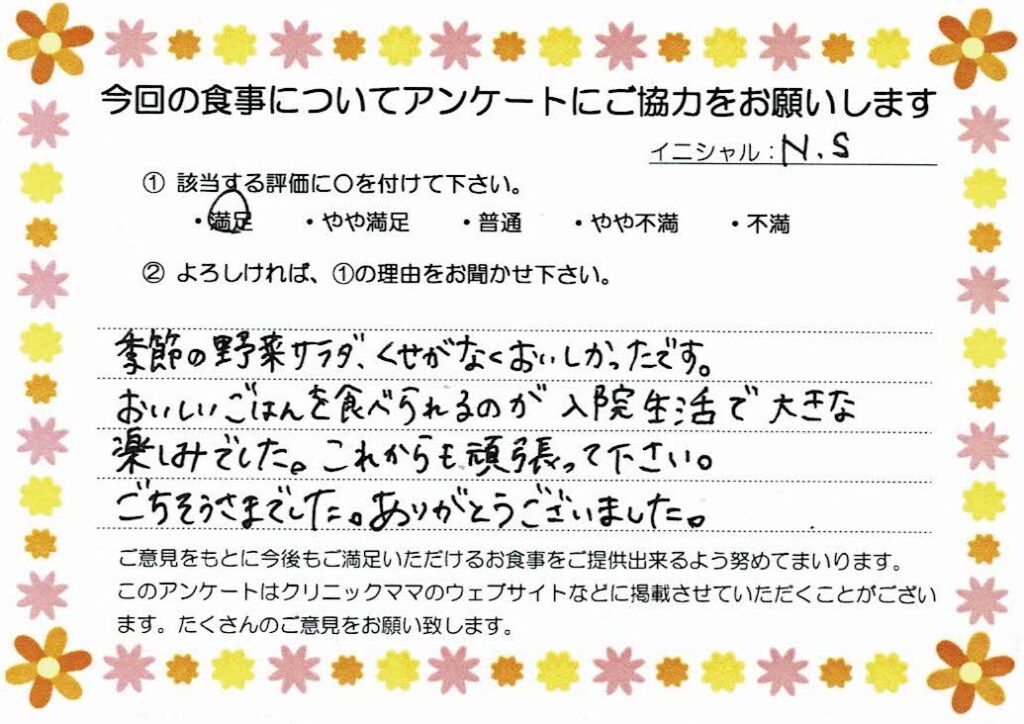 今回の食事についてアンケートにご協力をお願いします
イニシャル：N.S
① 該当する評価に○を付けて下さい。
・満足 ・やや満足 ・普通 ・やや不満 ・不満
② よろしければ、①の理由をお聞かせ下さい。
季節の野菜サラダ、くせがなくおいしかったです。
おいしいごはんを食べられるのが入院生活で大きな
楽しみでした。これからも頑張って下さい。
ごちそうさまでした。ありがとうございました。
ご意見をもとに今後もご満足いただけるお食事をご提供出来るよう努めてまいります。
このアンケートはクリニックママのウェブサイトなどに掲載させていただくことがござい
ます。たくさんのご意見をお願い致します。